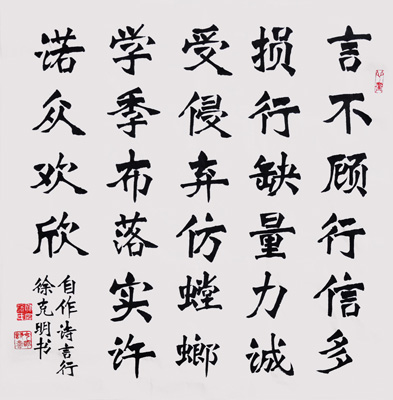 言不顾行信多
损行缺量力诚
受侵弃仿螳螂
学季布落实许
诺众欢欣
自作诗言行
徐克明书